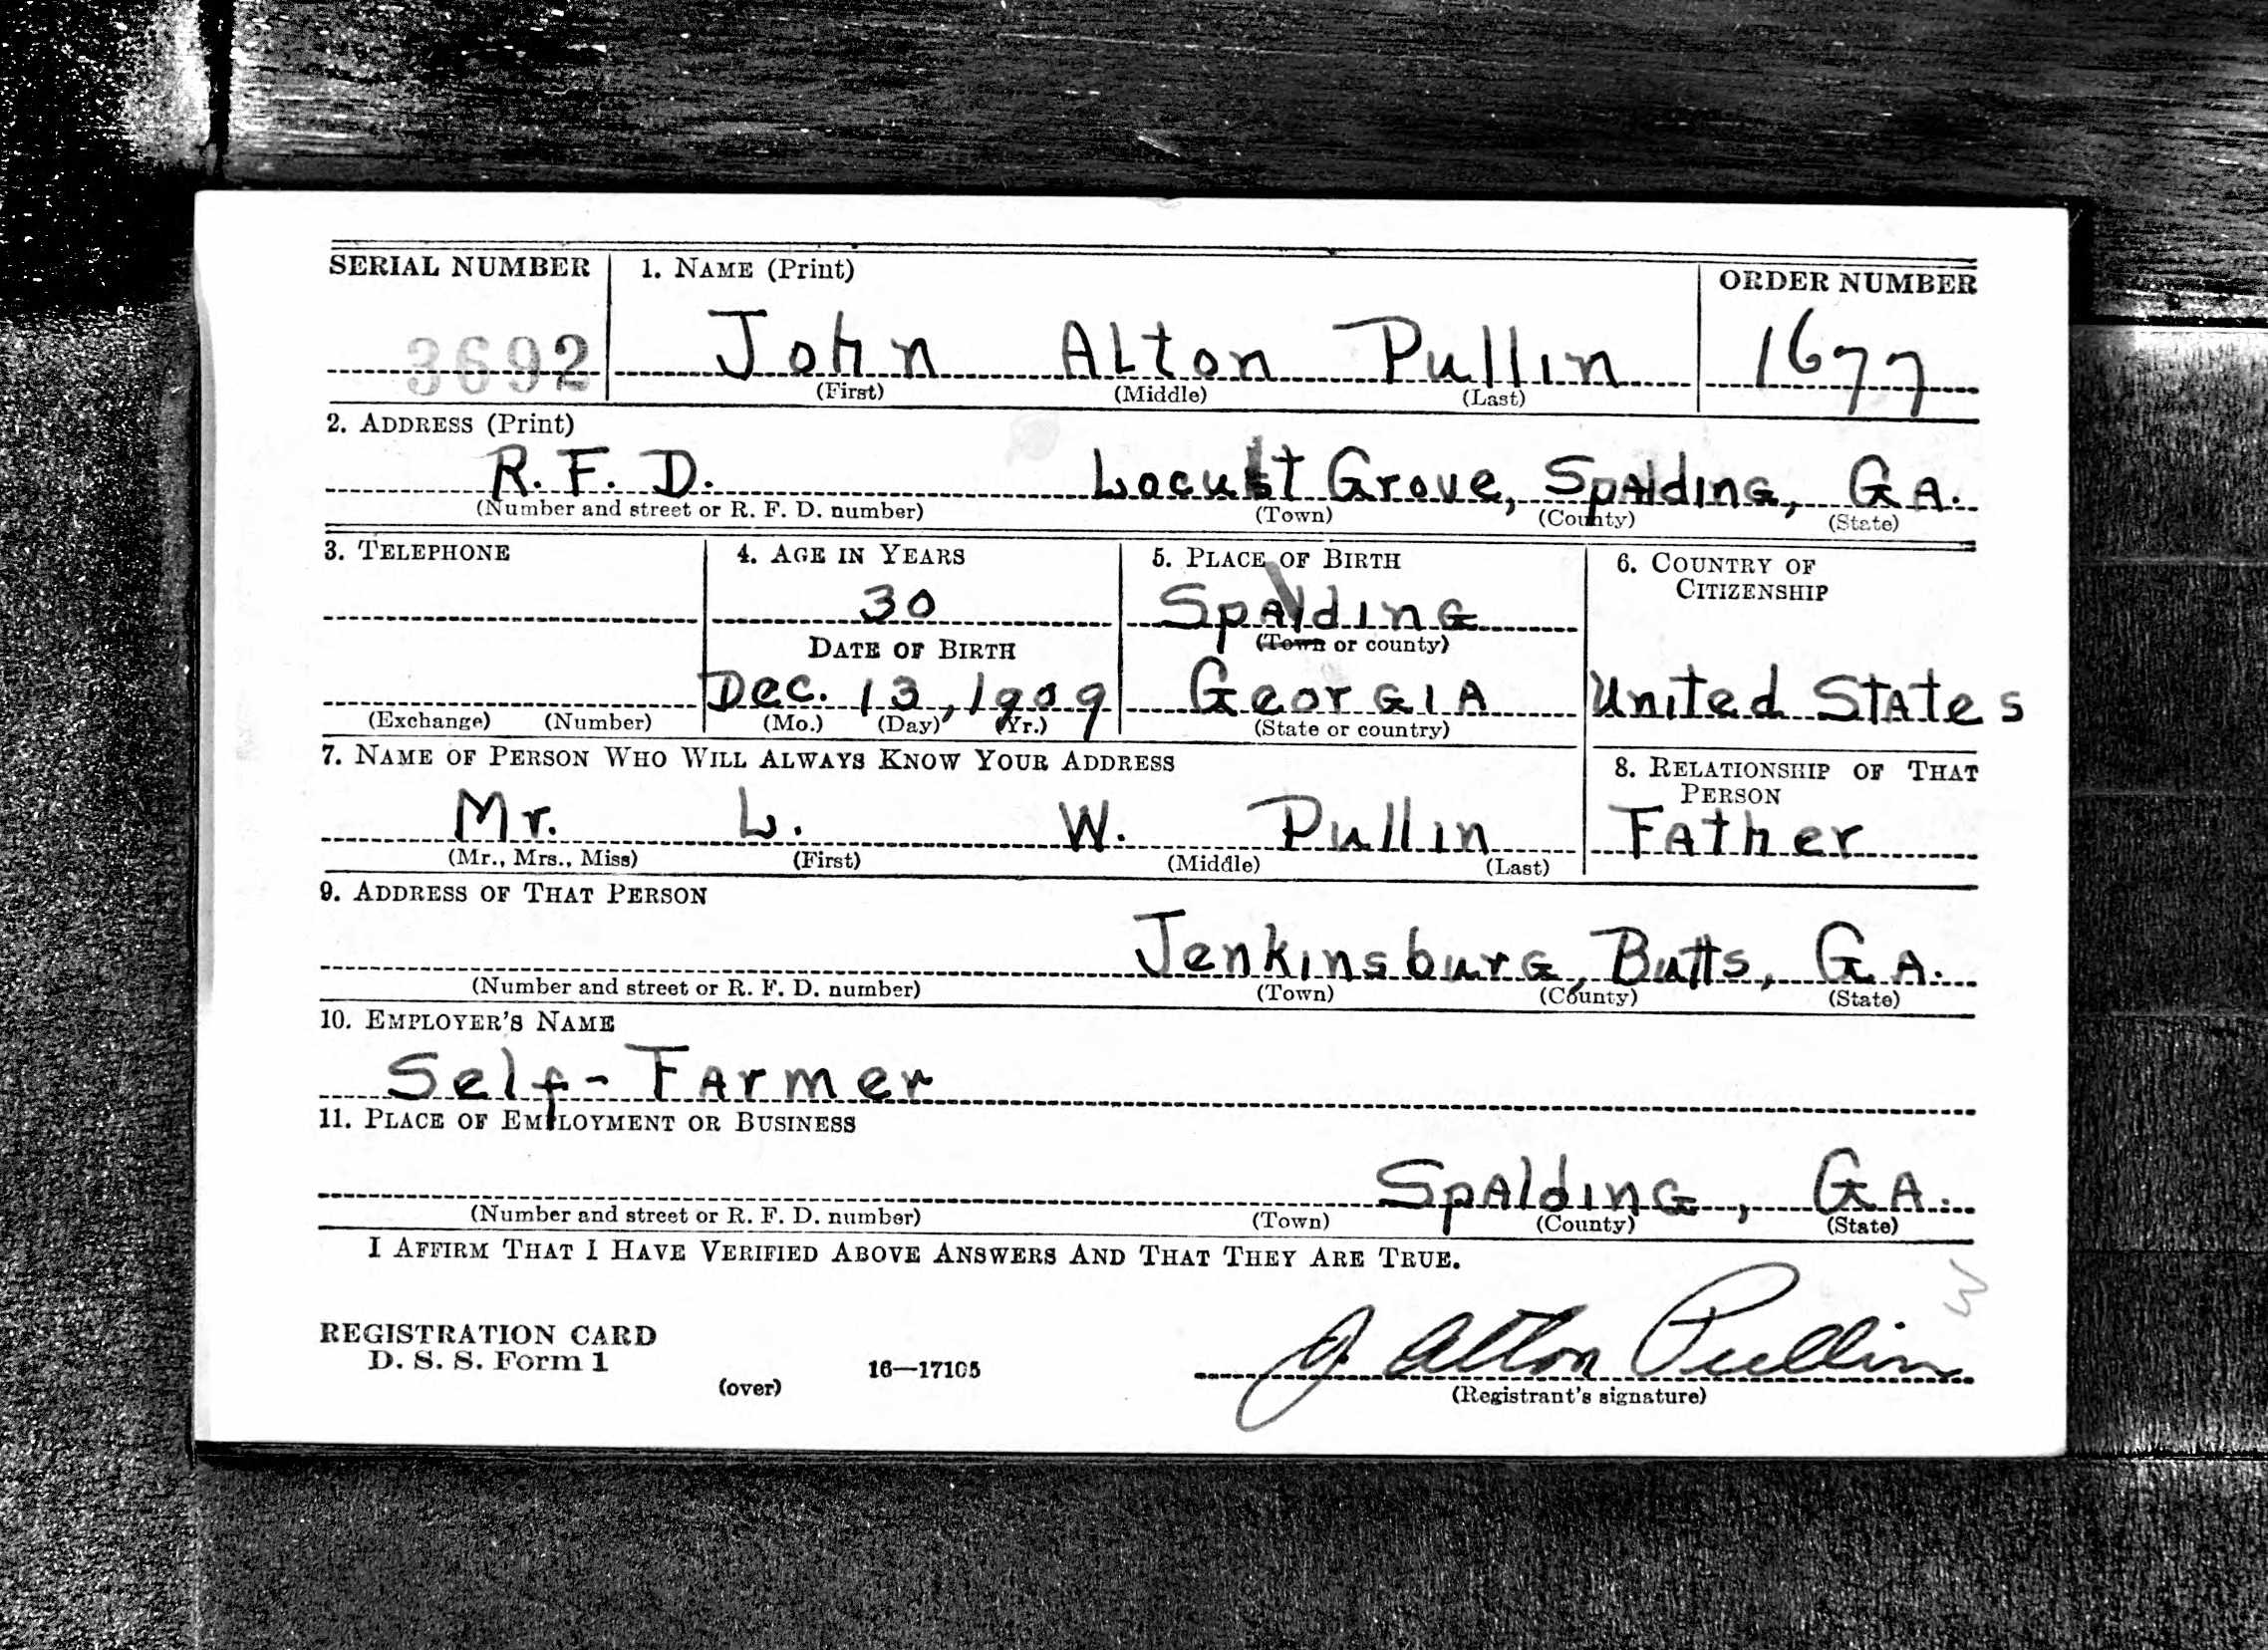 SERIAL NUMBER 1. NAME (Print) ORDER NUMBER
3692 John Alton Pullin 1677
(First) (Middle) (Last)
2. ADDRESS (Print)
R. F. D. Locust Grove, Spalding, GA.
(Number and street or R. F. D. number) (Town) (County) (State)
3. TELEPHONE 4. AGE IN YEARS 5. PLACE OF BIRTH 6. COUNTRY OF CITIZENSHIP
30 Spalding
DATE OF BIRTH (Town or county)
Dec. 13, 1909 Georgia United States
(Exchange) (Number) (Mo.) (Day) (Yr.) (State or country)
7. NAME OF PERSON WHO WILL ALWAYS KNOW YOUR ADDRESS 8. RELATIONSHIP OF THAT PERSON
Mr. L. W. Pullin Father
(Mr., Mrs., Miss) (First) (Middle) (Last)
9. ADDRESS OF THAT PERSON
Jenkinsburg, Butts, GA.
(Number and street or R. F. D. number) (Town) (County) (State)
10. EMPLOYER'S NAME
Self-Farmer
11. PLACE OF EMPLOYMENT OR BUSINESS
Spalding, GA.
(Number and street or R. F. D. number) (Town) (County) (State)
I AFFIRM THAT I HAVE VERIFIED ABOVE ANSWERS AND THAT THEY ARE TRUE.
REGISTRATION CARD
D. S. S. Form 1
(over) 16—17105
J. Alton Pullin
(Registrant's signature)